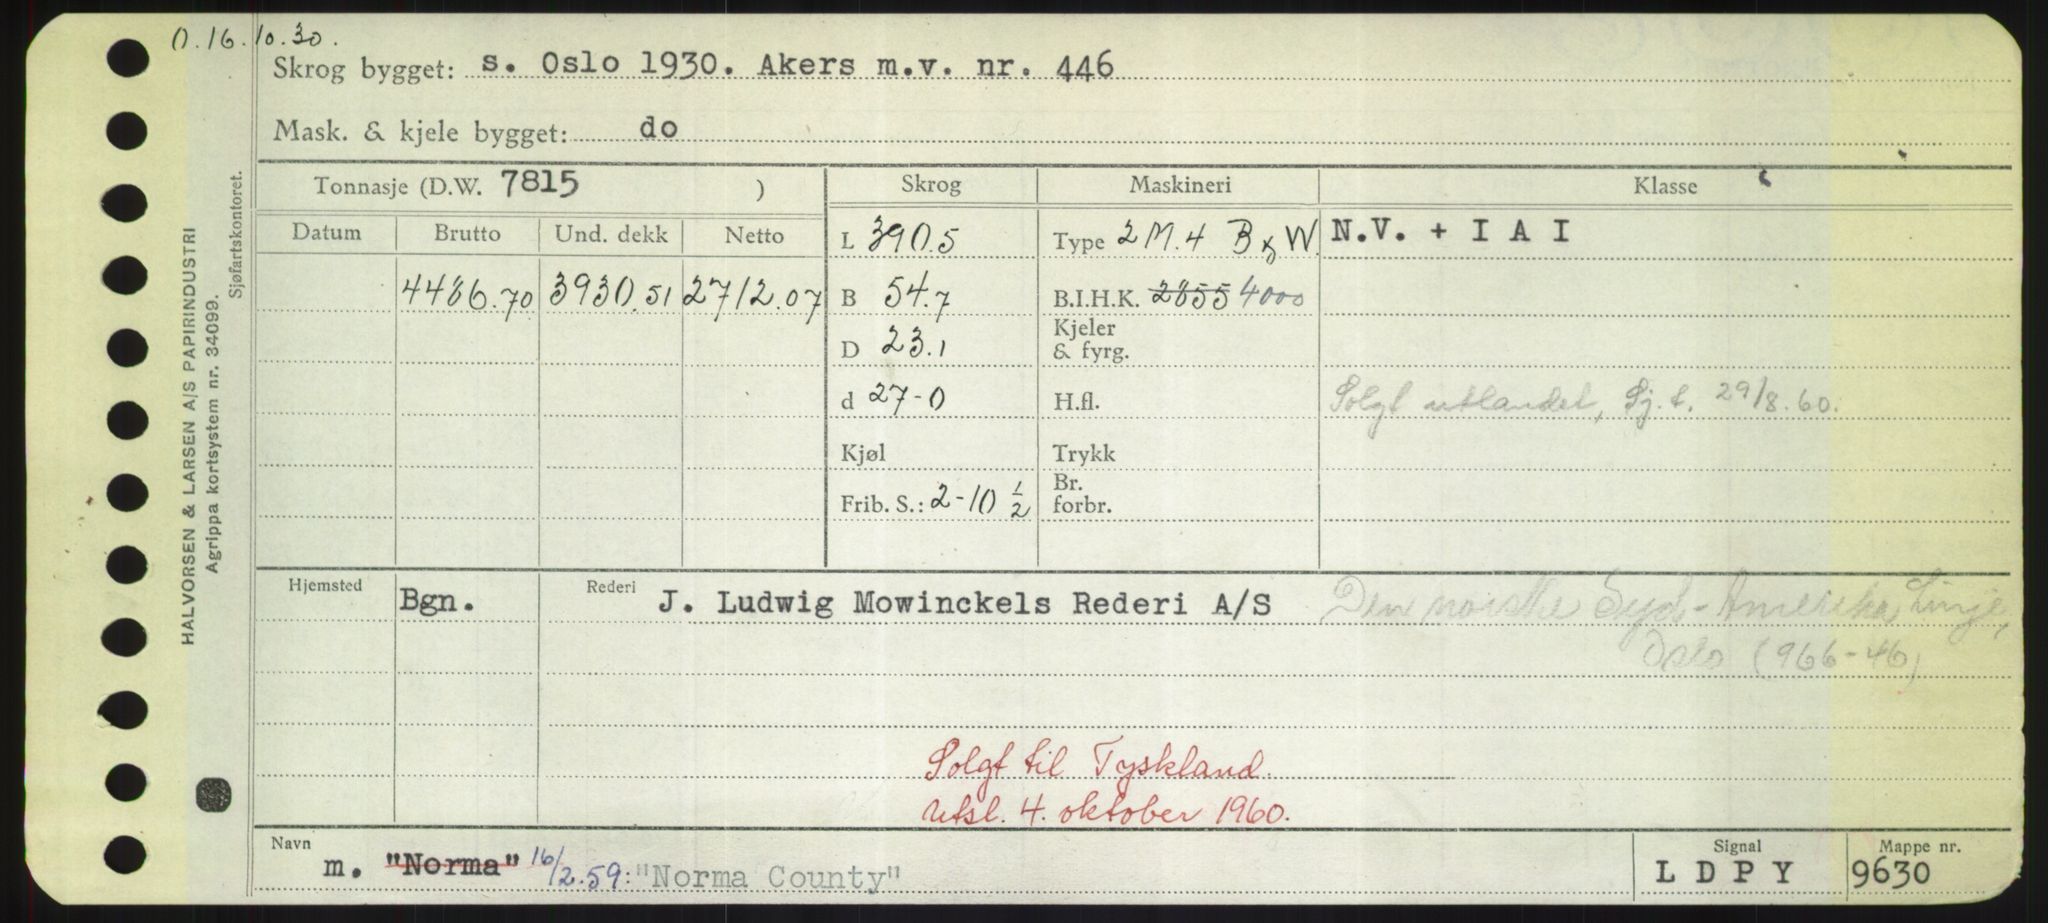 O. 16.10.30.
Skrog bygget: s. Oslo 1930. Akers m.v. nr. 446
Mask. & kjele bygget: do
HALVORSEN & LARSEN A/S PAPIRINDUSTRI
Agrippa kortsystem nr. 34099.
Sjøfartskontoret.
Tonnasje (D.W. 7815 ) Skrog Maskineri Klasse
Datum Brutto Und. dekk Netto L 390.5 Type 2 M.4 B & W. N.V. + I A I
4486.70 3930.51 2712.07 B 54.7 B.I.H.K. 2855 4000
D 23.1 Kjeler & fyrg.
d 27-0 H.fl. Solgt utlandet, Sj.t. 29/8.60.
Kjøl Trykk
Frib. S.: 2-10 1/2 Br. forbr.
Hjemsted Bgn. Rederi J. Ludwig Mowinckels Rederi A/S Den norske Syd-Amerika Linje,
Oslo (966-46)
Solgt til Tyskland.
Utsl. 4. oktober 1960.
Navn m. "Norma" 16/2.59: "Norma County" Signal L D P Y Mappe nr. 9630